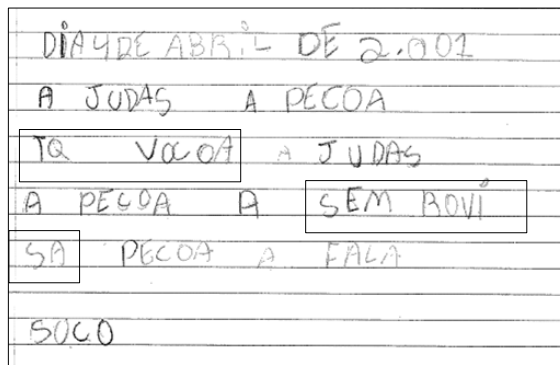 DIA 4 DE ABRIL DE 2.001
A JUDAS A PECOA
TQ VOCOA A JUDAS
A PECOA A SEM ROVI
SA PECOA A FALA
SOCO